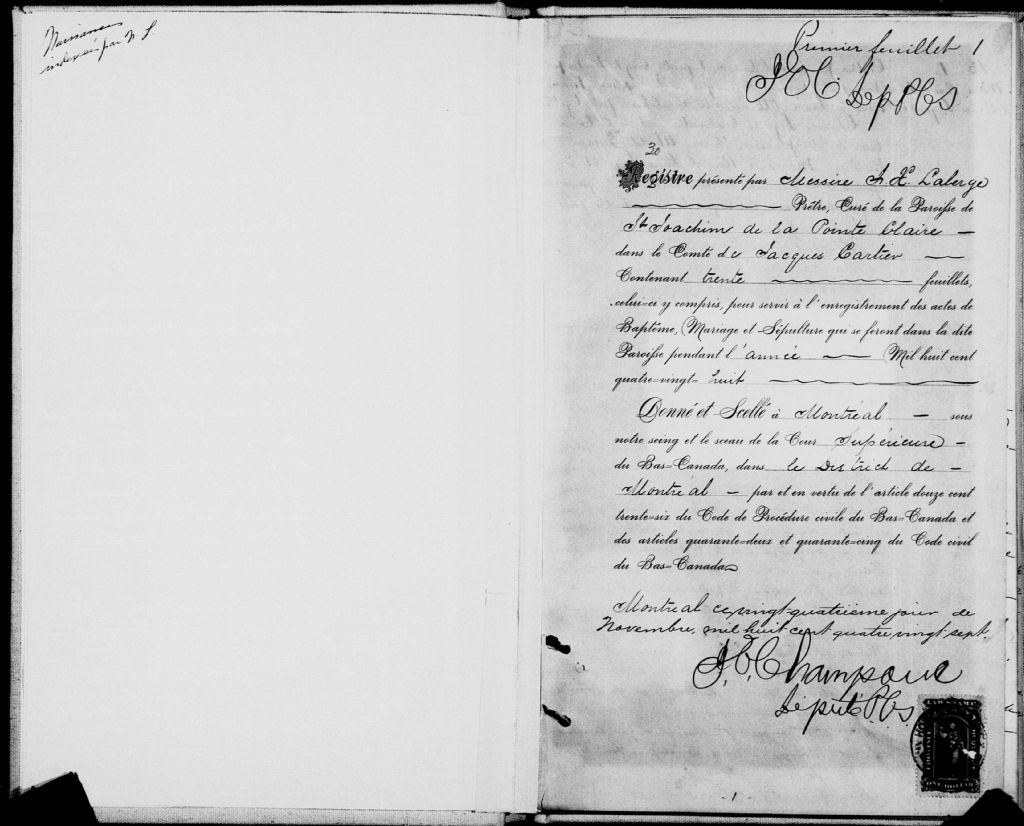 Naissances
indexées par N. S.
Premier feuillet 1
J E C
Dep P C S
30
Registre présenté par Messire A. X. Laberge
Prêtre, Curé de la Paroisse de
St Joachim de la Pointe Claire —
dans le Comté de Jacques Cartier —
Contenant trente feuillets,
celui-ci y compris, pour servir à l'enregistrement des actes de
Baptême, Mariage et Sépulture qui se feront dans la dite
Paroisse pendant l'année — Mil huit cent
quatre=vingt= huit
Donné et Scellé à Montréal — sous
notre seing et le sceau de la Cour Supérieure —
du Bas=Canada, dans le District de —
Montréal — par et en vertu de l'article douze cent
trente=six du Code de Procédure civile du Bas=Canada et
des articles quarante=deux et quarante=cinq du Code civil
du Bas=Canada
Montréal ce vingt-quatrième jour de
Novembre, mil huit cent quatre vingt sept.
J. E. Champoux
Député P. C. S.
ONE DOLLAR
1